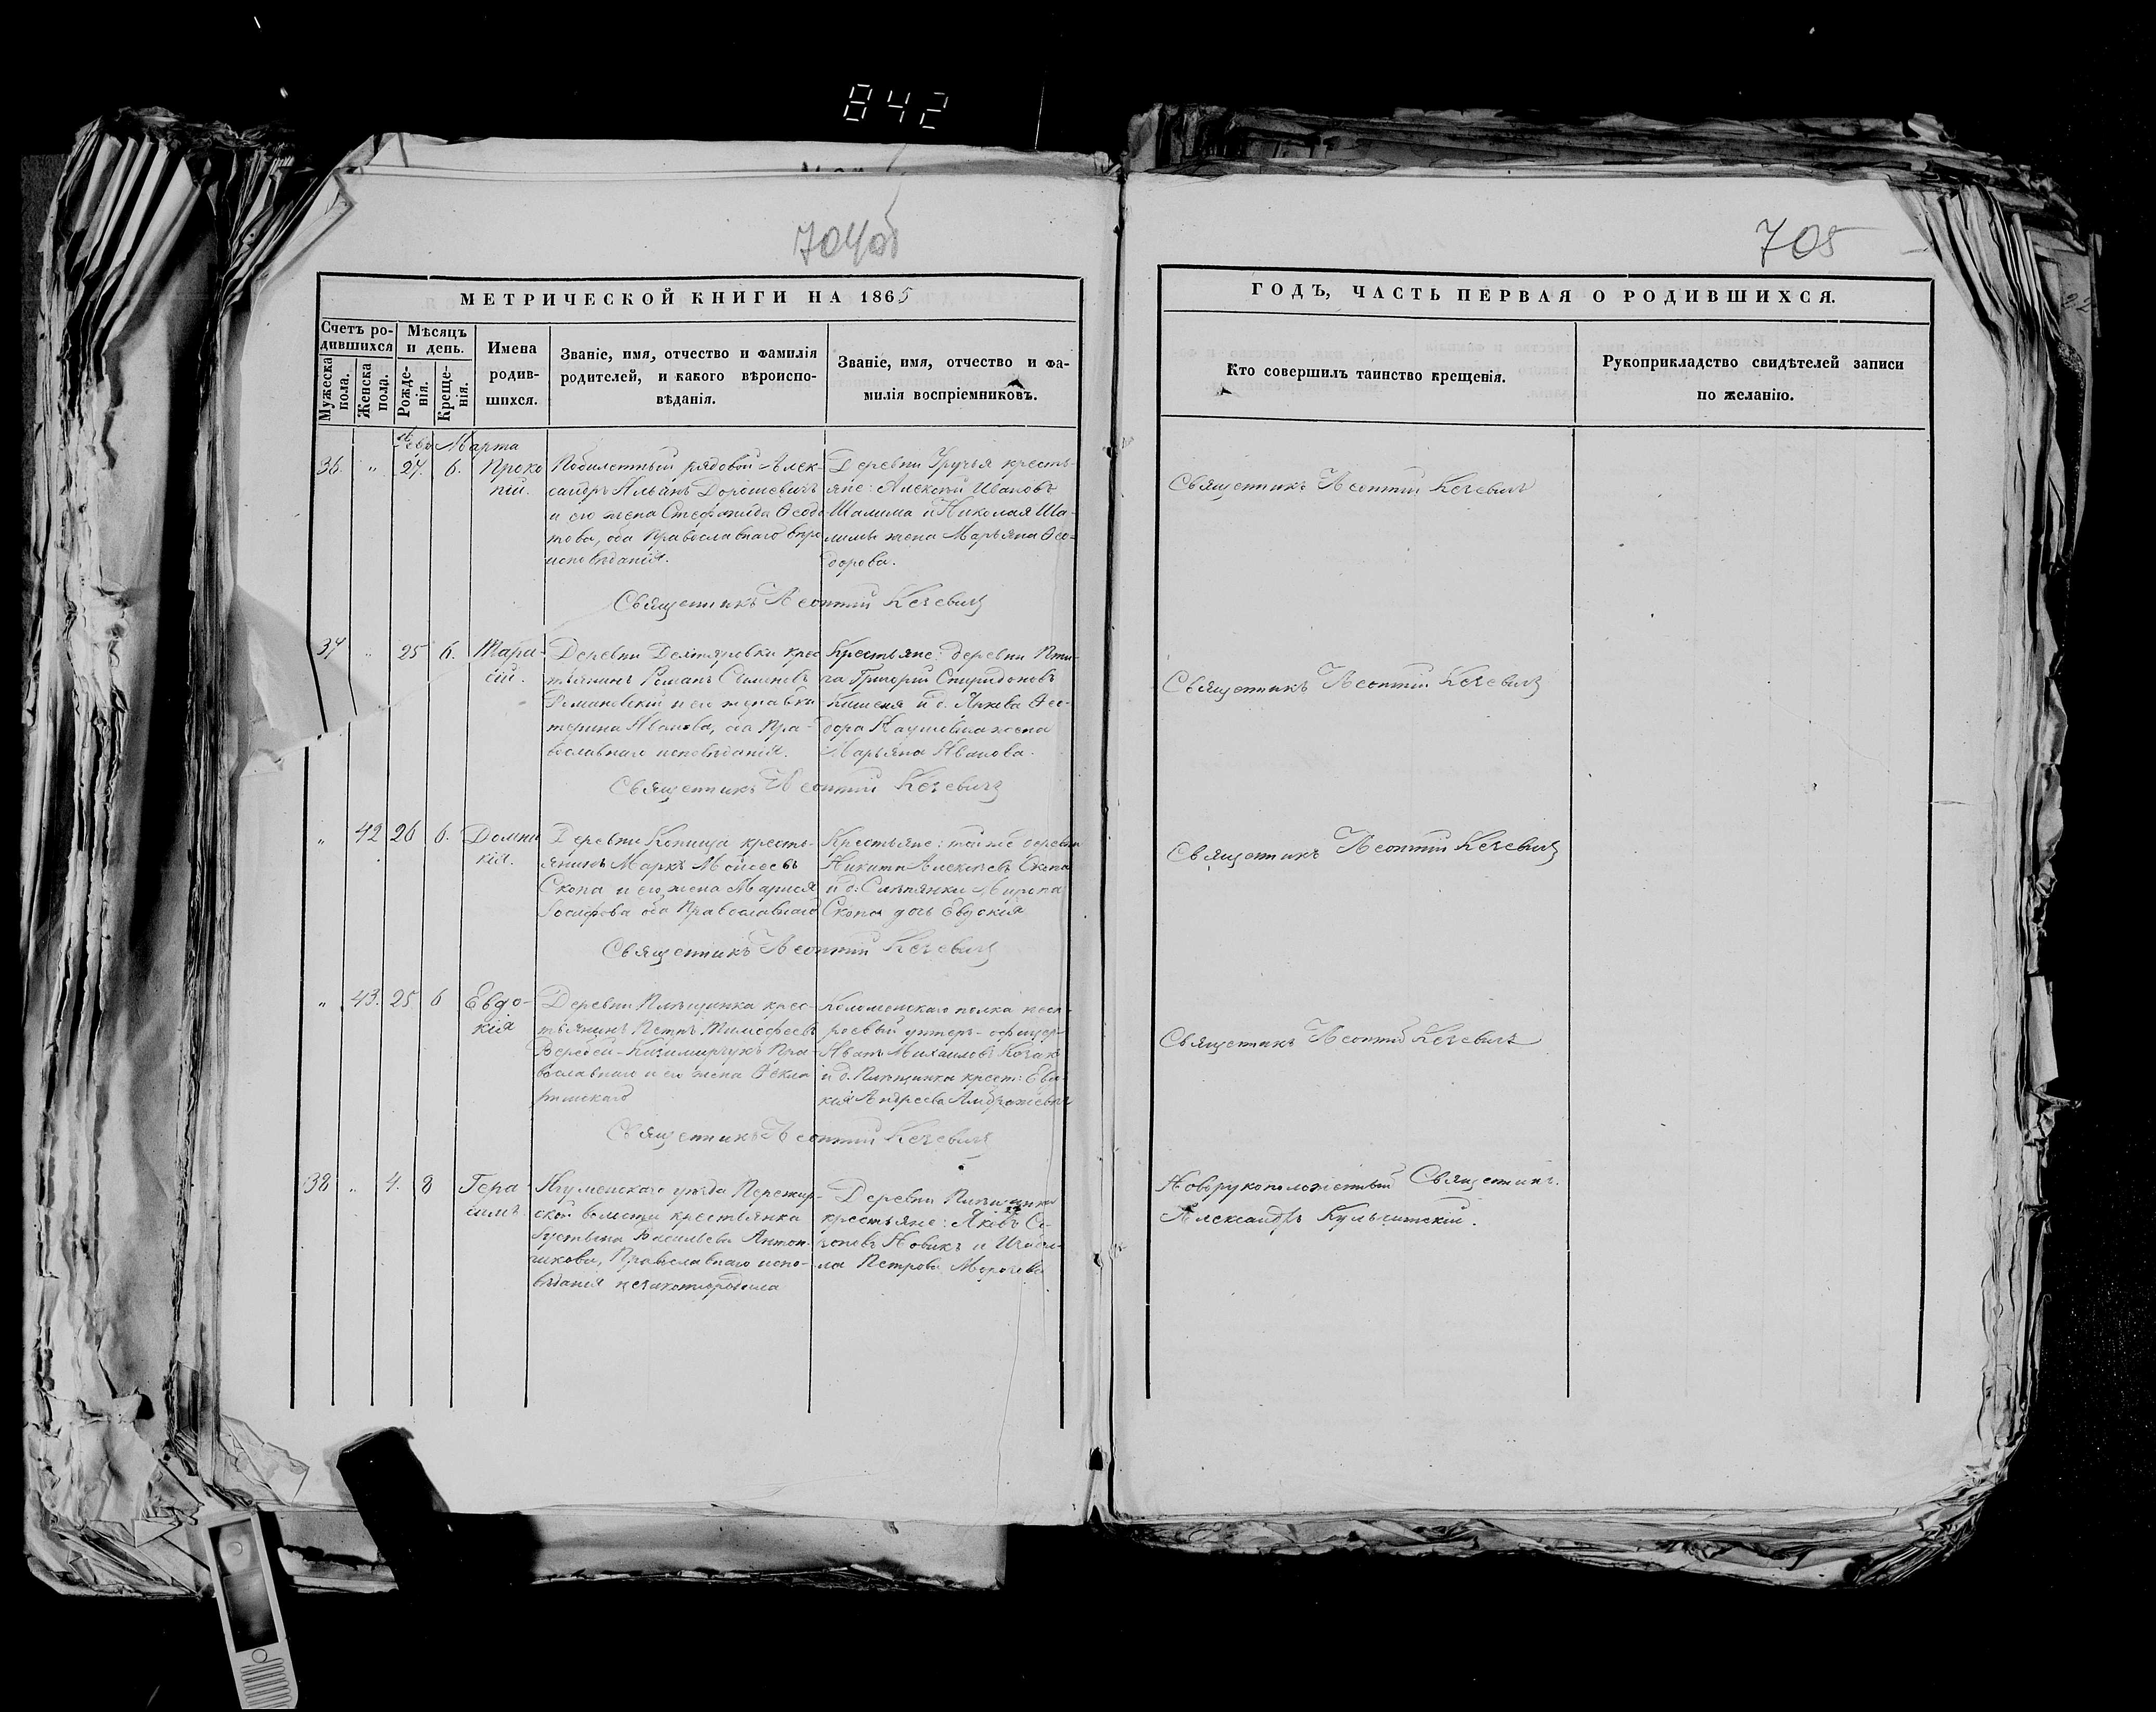 842
704об
МЕТРИЧЕСКОЙ КНИГИ НА 1865
Счетъ ро-
дившихся
Мужеска
пола.
Женска
пола.
Мѣсяцъ
и день.
Рожде-
нія.
Креще-
нія.
Имена
родив-
шихся.
Званіе, имя, отчество и фамилія
родителей, и какого вѣроиспо-
вѣданія.
Званіе, имя, отчество и фа-
милія воспріемниковъ.
Февр. Марта
36. " 27. 6. Проко
пій.
Побилетный рядовой Алек-
сандръ Дорошевичъ
и его жена Стефанида Ѳеодо
това, оба Православнаго вѣро
исповѣданія.
Деревни кресть-
яне: Алексѣй Ивановъ
Шалима и Николая Ша-
лимы жена Марьяна Ѳео-
дорова.
Священникъ Леонтій Кечевичъ
37 " 25 6. Тара-
сій.
Деревни Дехтяревки крес
тьянинъ Романъ
и его жена Ека
терина Иванова, оба Пра-
вославнаго исповѣданія.
Крестьяне: деревни Пти-
ча Григорій Спиридоновъ
Кишеня и д. Ѳео-
дора жена
Марьяна Иванова.
Священникъ Леонтій Кечевичъ
" 42 26 6. Домни
кія.
Деревни Копища кресть-
янинъ Маркъ Моисеевъ
Скопа и его жена Марися
Іосифова оба Православнаго
Крестьяне: той же деревни
Никита Алексѣевъ Скопа
и д. Слѣпянки Мирона
Скопы дочь Евдокія
Священникъ Леонтій Кечевичъ
" 43. 25 6 Евдо-
кія
Деревни Плѣщинка крес-
тьянинъ Петръ Тимофеевъ
Веребей-Казимирчукъ Пра-
вославнаго и его жена Ѳекла
римскаго
Коломенскаго полка
унтеръ-офицеръ
Иванъ Михаиловъ Козакъ
и д. Плѣщинка крест: Евдо-
кія Андреева
Священникъ Леонтій Кечевичъ
38 " 4. 8 Гера-
симъ.
Игуменскаго уѣзда
ской волости крестьянка
Іустина Васильева Антон-
чикова, Православнаго испо-
вѣданія незаконнорodила
Деревни Плѣщинки
крестьяне: Яковъ
Новикъ и
Петрова
705
ГОДЪ, ЧАСТЬ ПЕРВАЯ О РОДИВШИХСЯ.
Кто совершилъ таинство крещенія.
Рукоприкладство свидѣтелей записи
по желанію.
Священникъ Леонтій Кечевичъ
Священникъ Леонтій Кечевичъ
Священникъ Леонтій Кечевичъ
Священникъ Леонтій Кечевичъ
Новорукоположенный Священникъ
Александръ Кульчитскій.